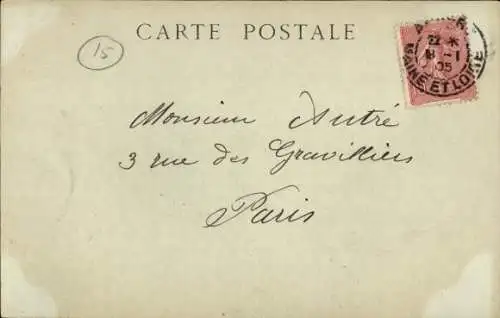 CARTE POSTALE
15
22 *
8 - 1
05
MAINE ET LOIRE
Monsieur Autré
3 rue des Gravilliers
Paris